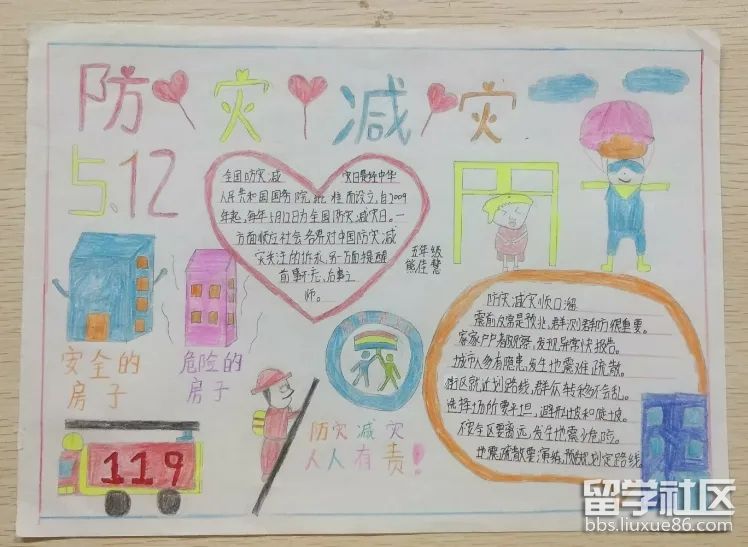 防灾减灾
5.12
全国防灾减灾日是经中华
人民共和国国务院批准而设立,自2009
年起,每年5月12日为全国防灾减灾日。一
方面顺应社会各界对中国防灾减
灾关注的诉求,另一方面提醒
前事不忘,后事之
师。
五年级
熊佳慧
安全的
房子
危险的
房子
防灾减灾
人人有责!
119
防灾减灾顺口溜
震前反常是预兆,群测群防很重要。
家家户户都观察,发现异常快报告。
城市人多有隐患,发生地震难疏散。
街区就计划路线,群众转移不会乱。
选择场所要平坦,避开山坡和陡坡。
不安全区要离远,发生地震少危险。
地震疏散要演练,预先规划定路线
留学社区
bbs.liuxue86.com